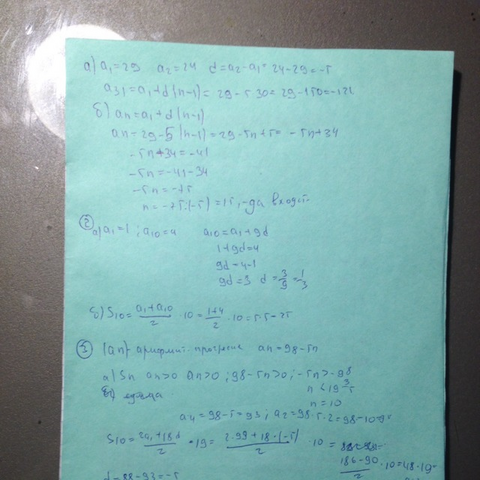 а) a₁=29 a₂=24 d=a₂-a₁=24-29=-5
a₃₁=a₁+d(n-1)=29-5·30=29-150=-121
б) an=a₁+d(n-1)
an=29-5(n-1)=29-5n+5=-5n+34
-5n+34=-41
-5n=-41-34
-5n=-75
n=-75:(-5)=15, -да входит
② а) a₁=1; a₁₀=4 a₁₀=a₁+9d
1+9d=4
9d=4-1
9d=3 d=3/9=1/3
б) S₁₀=(a₁+a₁₀)/2·10=(1+4)/2·10=5·5=25
③ (an) арифмет. прогрессия an=98-5n
а) Sn an>0 an>0; 98-5n>0; -5n>-98
n<19
n=19
a₁=98-5=93; a₂=98-5·2=98-10=88
S₁₀=(2a₁+18d)/2·19=(2·93+18·(-5))/2·10=
(186-90)/2·10=48·19=
d=88-93=-5